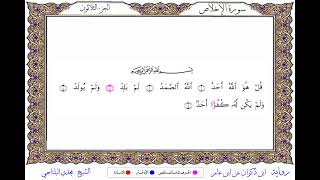 سورة الإخلاص
الجزء الثلاثون
بِسْمِ اللَّهِ الرَّحْمَٰنِ الرَّحِيمِ
قُلْ هُوَ ٱللَّهُ أَحَدٌ ٱللَّهُ ٱلصَّمَدُ لَمْ يَلِدْ وَلَمْ يُولَدْ
وَلَمْ يَكُن لَّهُۥ كُفُؤًا أَحَدٌ
رواية ابن ذكوان عن ابن عامر
الشيخ مجدي